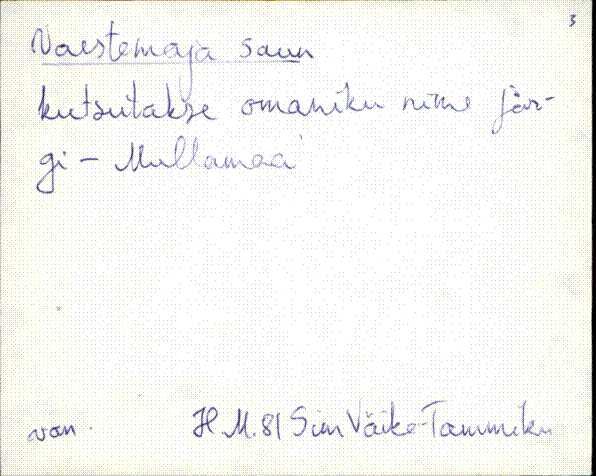 3
Vaestemaja saun
kutsutakse omaniku nime jär-
gi - Mullamaa
van. H.M. 81 Sim Väike-Tammiku